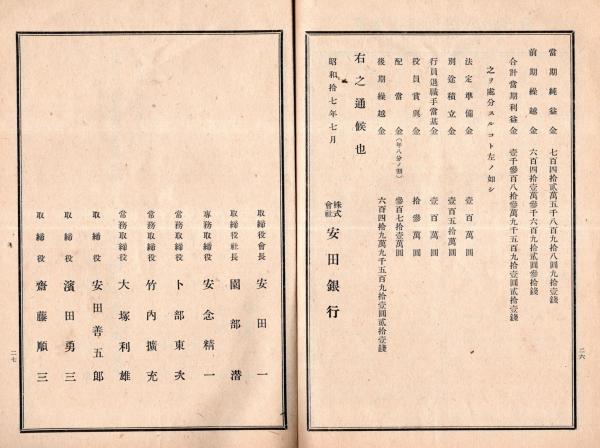 當期純益金 七百四拾貳萬五千八百九拾八圓九拾壹錢
前期繰越金 六百四拾壹萬參千六百九拾貳圓參拾錢
合計當期利益金 壹千參百八拾參萬九千五百九拾壹圓貳拾壹錢
之ヲ處分スルコト左ノ如シ
法定準備金 壹百萬圓
別途積立金 壹百五拾萬圓
行員退職手當基金 壹百萬圓
役員賞與金 拾參萬圓
配當金(年八分ノ割) 參百七拾壹萬圓
後期繰越金 六百四拾九萬九千五百九拾壹圓貳拾壹錢
右之通候也
昭和拾七年七月
株式會社 安田銀行
二六
取締役會長 安田一
取締役社長 園部潛
專務取締役 安念精一
常務取締役 卜部東次
常務取締役 竹内擴充
常務取締役 大塚利雄
取締役 安田善五郎
取締役 濱田勇三
取締役 齋藤順三
二七